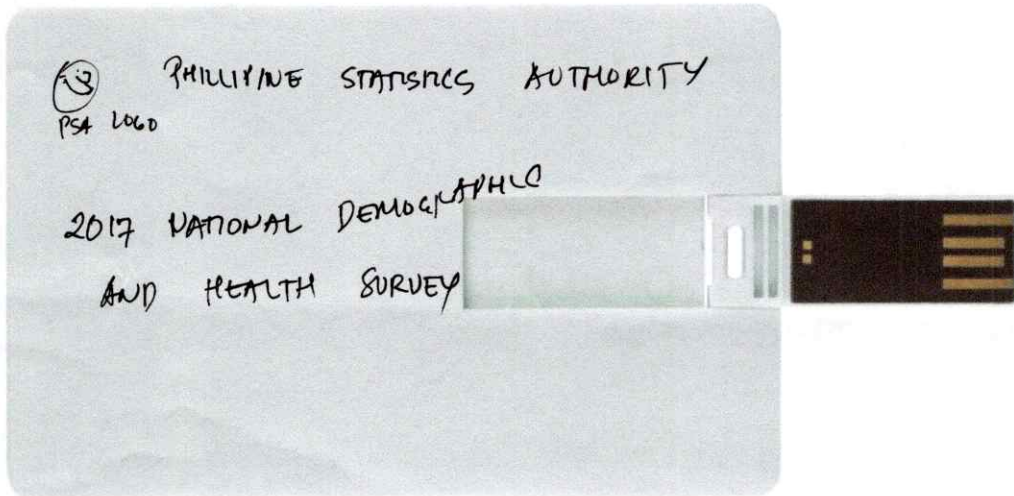 PHILLIPINE STATISTICS AUTHORITY
PSA LOGO
2017 NATIONAL DEMOGRAPHIC
AND HEALTH SURVEY